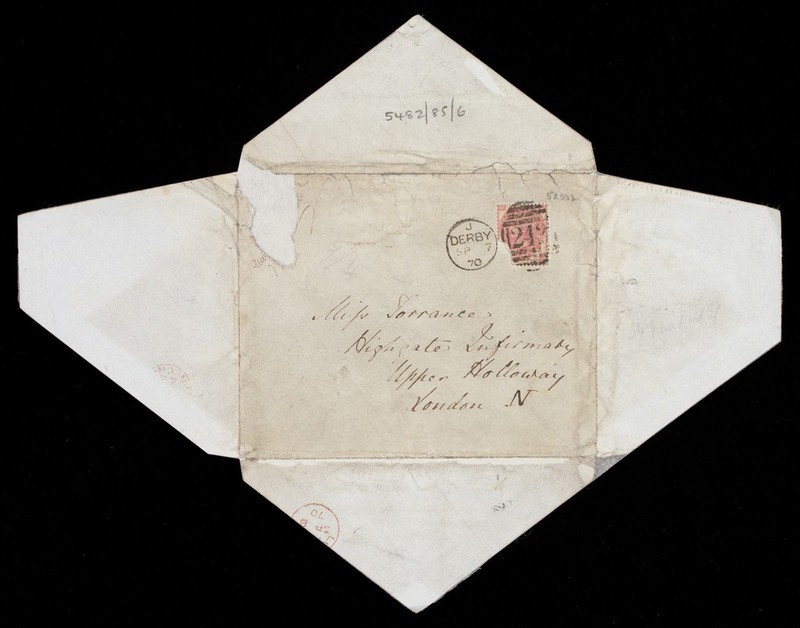 5482/85/6
52332
J
DERBY
SP 7
70
Miss Torrance
Highgate Infirmary
Upper Holloway
London N
SP 8
70